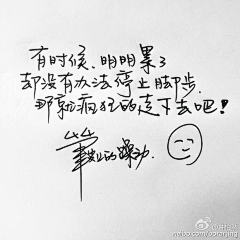 有时候,明明累了
却没有办法停止脚步.
那就疯狂的走下去吧!
笔尖上的躁动.